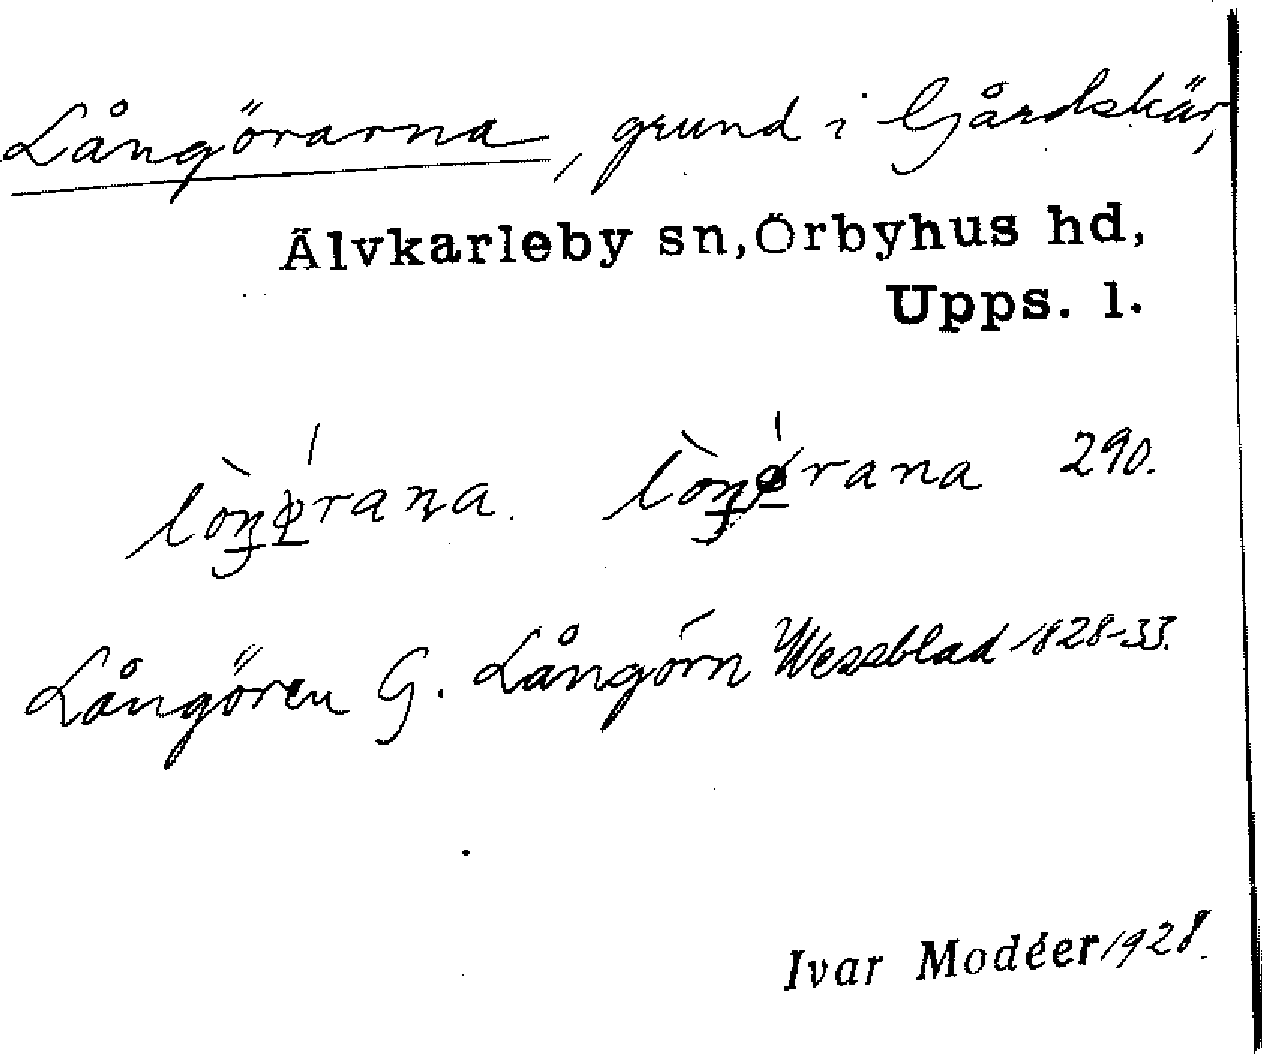 Långörarna, grund i Gårdskär,
Älvkarleby sn, Örbyhus hd,
Upps. l.
290.
Långören G. Långörn Wessblad 1828-33.
Ivar Modéer 1928.